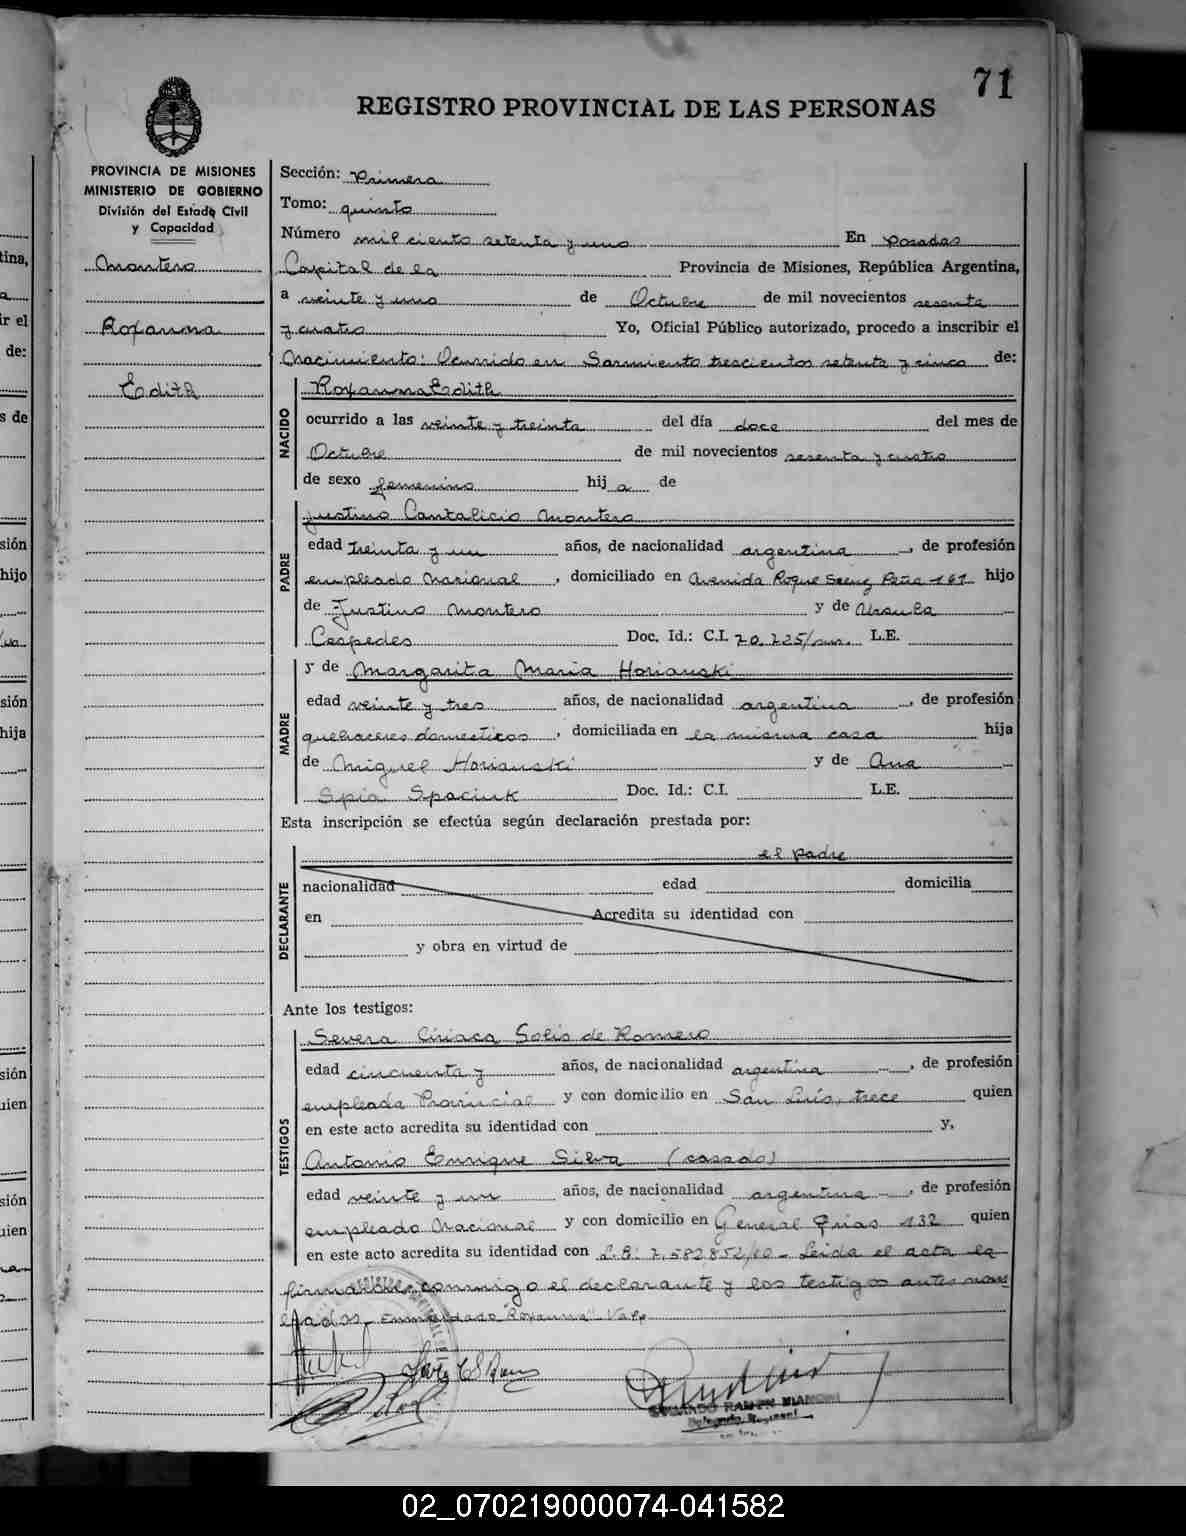 71
REGISTRO PROVINCIAL DE LAS PERSONAS
PROVINCIA DE MISIONES
MINISTERIO DE GOBIERNO
División del Estado Civil
y Capacidad
Montero
Roxanna
Edith
Sección: Primera
Tomo: quinto
Número mil ciento setenta y uno En Posadas
Capital de la Provincia de Misiones, República Argentina,
a veinte y uno de Octubre de mil novecientos sesenta
y cuatro Yo, Oficial Público autorizado, procedo a inscribir el
Nacimiento: Ocurrido en Sarmiento trescientos setenta y cinco de:
NACIDO
Roxanna Edith
ocurrido a las veinte y treinta del día doce del mes de
Octubre de mil novecientos sesenta y cuatro
de sexo femenino hij a de
PADRE
Justino Cantalicio Montero
edad treinta y un años, de nacionalidad argentina, de profesión
empleado Nacional, domiciliado en Avenida Roque Saenz Peña 161 hijo
de Justino Montero y de Ursula
Cespedes Doc. Id.: C.I. 70.225/ L.E.
MADRE
y de Margarita Maria Horianski
edad veinte y tres años, de nacionalidad argentina, de profesión
quehaceres domesticos, domiciliada en la misma casa hija
de Miguel Horianski y de Ana
Spia Spaciuk Doc. Id.: C.I. L.E.
Esta inscripción se efectúa según declaración prestada por:
DECLARANTE
el padre
nacionalidad edad domicilia
en Acredita su identidad con
y obra en virtud de
Ante los testigos:
TESTIGOS
Severa Ciriaca Solis de Romero
edad cincuenta y años, de nacionalidad argentina, de profesión
empleada Provincial y con domicilio en San Luis, trece quien
en este acto acredita su identidad con y,
Antonio Enrique Silva (casado)
edad veinte y un años, de nacionalidad argentina, de profesión
empleado Nacional y con domicilio en General Frias 132 quien
en este acto acredita su identidad con 7.582852/ Leida el acta la
firman conmigo el declarante y los testigos antes nom
brados. Enmendado "Roxanna" Vale
02_070219000074-041582